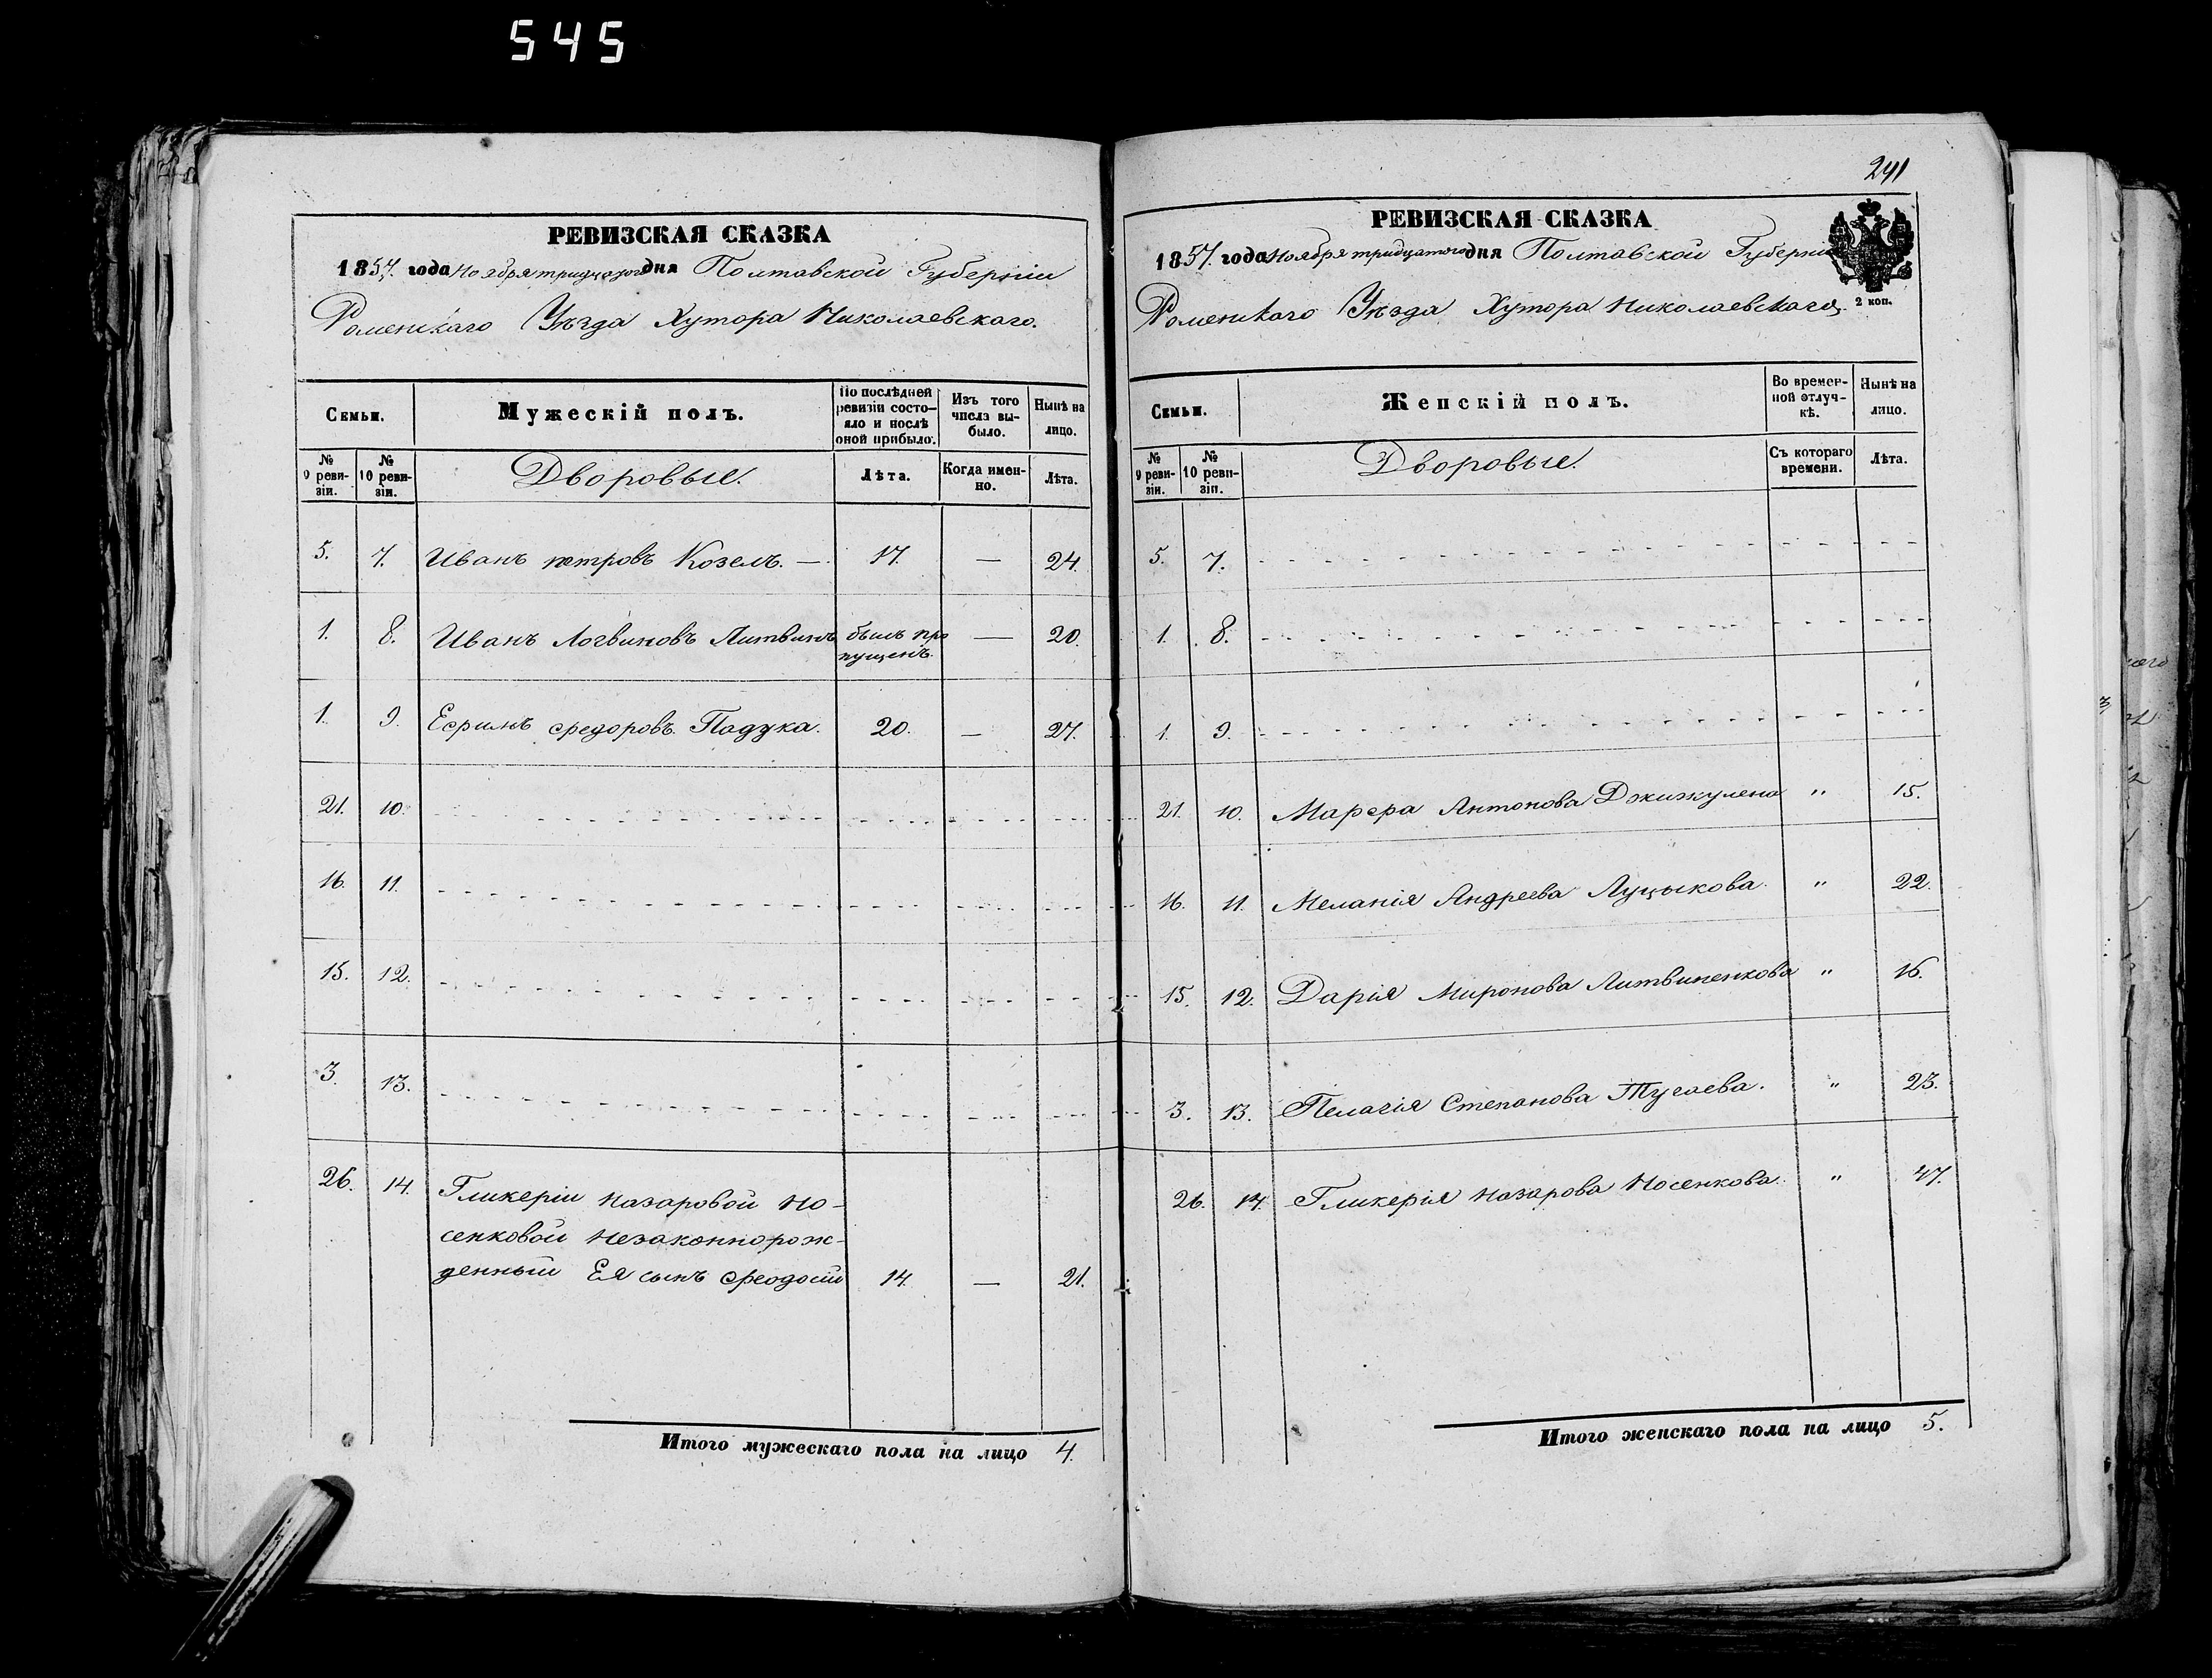 545
РЕВИЗСКАЯ СКАЗКА
1857. года Ноября тридцатого дня Полтавской Губернiи
Роменскаго Уѣзда Хутора Николаевскаго.
Семьи.
Мужескiй полъ.
По послѣдней ревизiи состояло и послѣ оной прибыло.
Изъ того числа выбыло.
Нынѣ на лицо.
№ 9 ревизiи.
№ 10 ревизiи.
Дворовые.
Лѣта.
Когда именно.
Лѣта.
5. 7. Иванъ петровъ Козелъ. — 17. — 24.
1. 8. Иванъ Логвиновъ Литвинъ былъ про
пущенъ. — 20.
1. 9. Ефримъ федоровъ Падука. 20. — 27.
21. 10.
16. 11.
15. 12.
3. 13.
26. 14. Гликерiи Назаровой Но-
сенковой Незаконнорож-
денный Ея сынъ Феодосiй 14. — 21.
Итого мужескаго пола на лицо 4.
241
РЕВИЗСКАЯ СКАЗКА
1857. года Ноября тридцатого дня Полтавской Губернiи
2 коп.
Роменскаго Уѣзда Хутора Николаевскаго.
Семьи.
Женскiй полъ.
Во временной отлучкѣ.
Нынѣ на лицо.
№ 9 ревизiи.
№ 10 ревизiи.
Дворовые.
Съ котораго времени.
Лѣта.
5. 7.
1. 8.
1. 9.
21. 10. Марфа Антонова Джижулена " 15.
16. 11. Меланiя Андреева Луцыкова. " 22.
15. 12. Дарiя Миронова Литвиненкова " 16.
3. 13. Пелагiя Степанова Тугаева. " 23.
26. 14. Гликерiя Назарова Носенкова. " 47.
Итого женскаго пола на лицо 5.